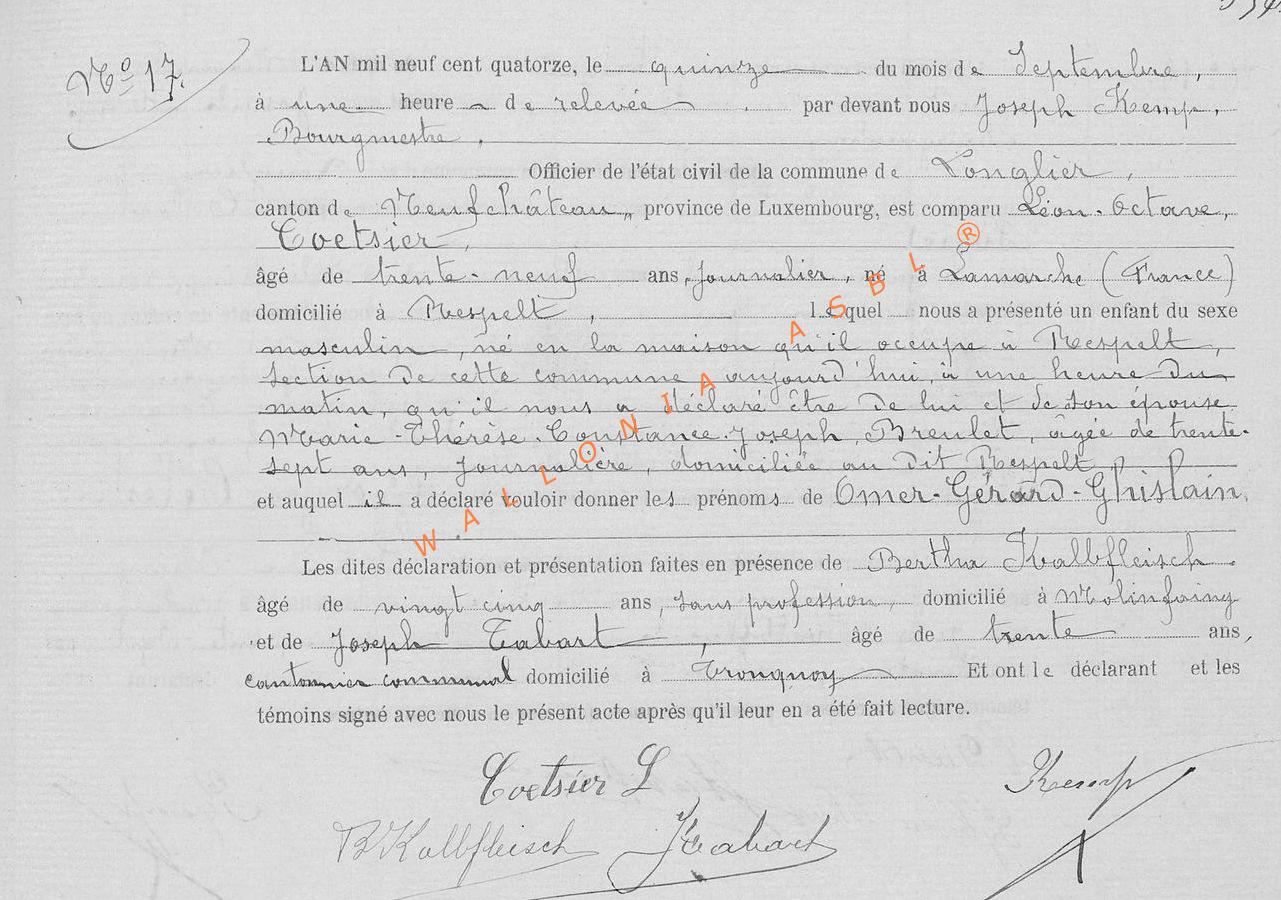 Nº 17.
L'AN mil neuf cent quatorze, le quinze du mois de Septembre,
à une heure de relevée par devant nous Joseph Kemp,
Bourgmestre,
Officier de l'état civil de la commune de Longlier,
canton de Neufchâteau, province de Luxembourg, est comparu Léon-Octave,
Coetsier,
âgé de trente-neuf ans, journalier, né à Lamarche (France)
domicilié à Respelt, lequel nous a présenté un enfant du sexe
masculin, né en la maison qu'il occupe à Respelt,
section de cette commune aujourd'hui, à une heure du
matin, qu'il nous a déclaré être de lui et de son épouse
Marie-Thérèse-Constance-Joseph, Breulet, âgée de trente-
sept ans, journalière, domiciliée au dit Respelt
et auquel il a déclaré vouloir donner les prénoms de Omer-Gérard-Ghislain.
Les dites déclaration et présentation faites en présence de Bertha Kalbfleisch
âgé de vingt cinq ans, sans profession, domicilié à Molinfaing
et de Joseph Tabart, âgé de trente ans,
cantonnier communal domicilié à Tronquoy Et ont le déclarant et les
témoins signé avec nous le présent acte après qu'il leur en a été fait lecture.
Coetsier L Kemp
B Kalbfleisch J Tabart
WALLONIA ASBL ®